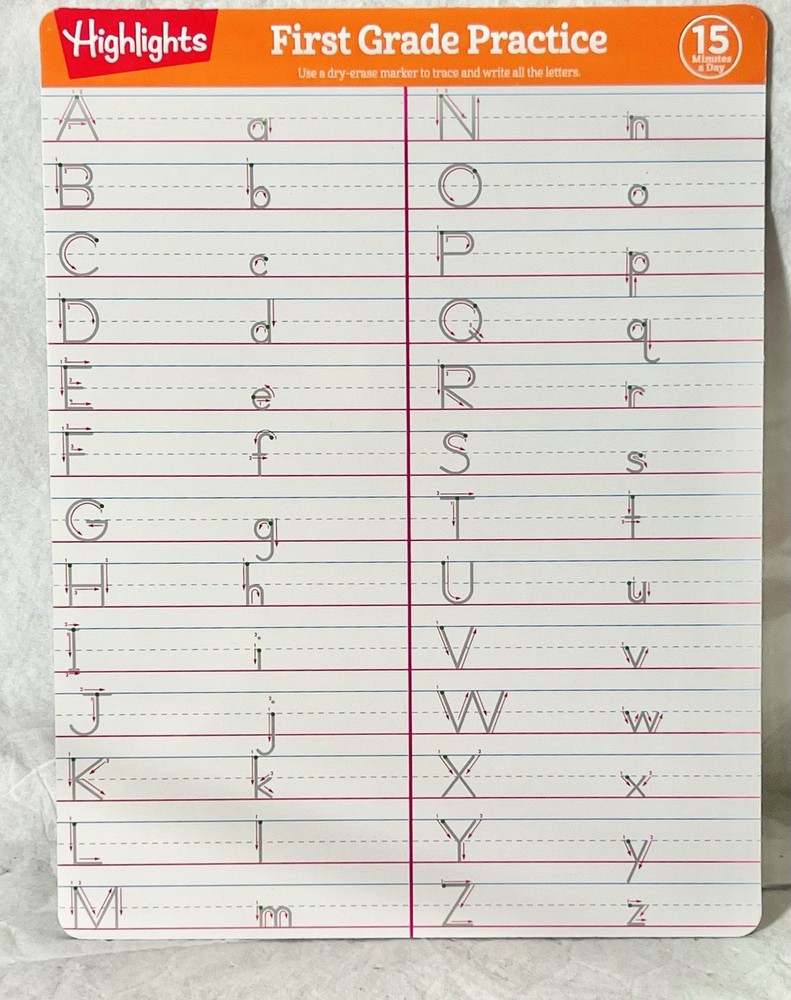 Highlights
First Grade Practice
15
Minutes
a Day
Use a dry-erase marker to trace and write all the letters.
A a
B b
C c
D d
E e
F f
G g
H h
I i
J j
K k
L l
M m
N n
O o
P p
Q q
R r
S s
T t
U u
V v
W w
X x
Y y
Z z